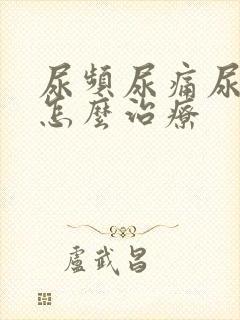 尿頻尿痛尿
怎麼治療
盧武昌